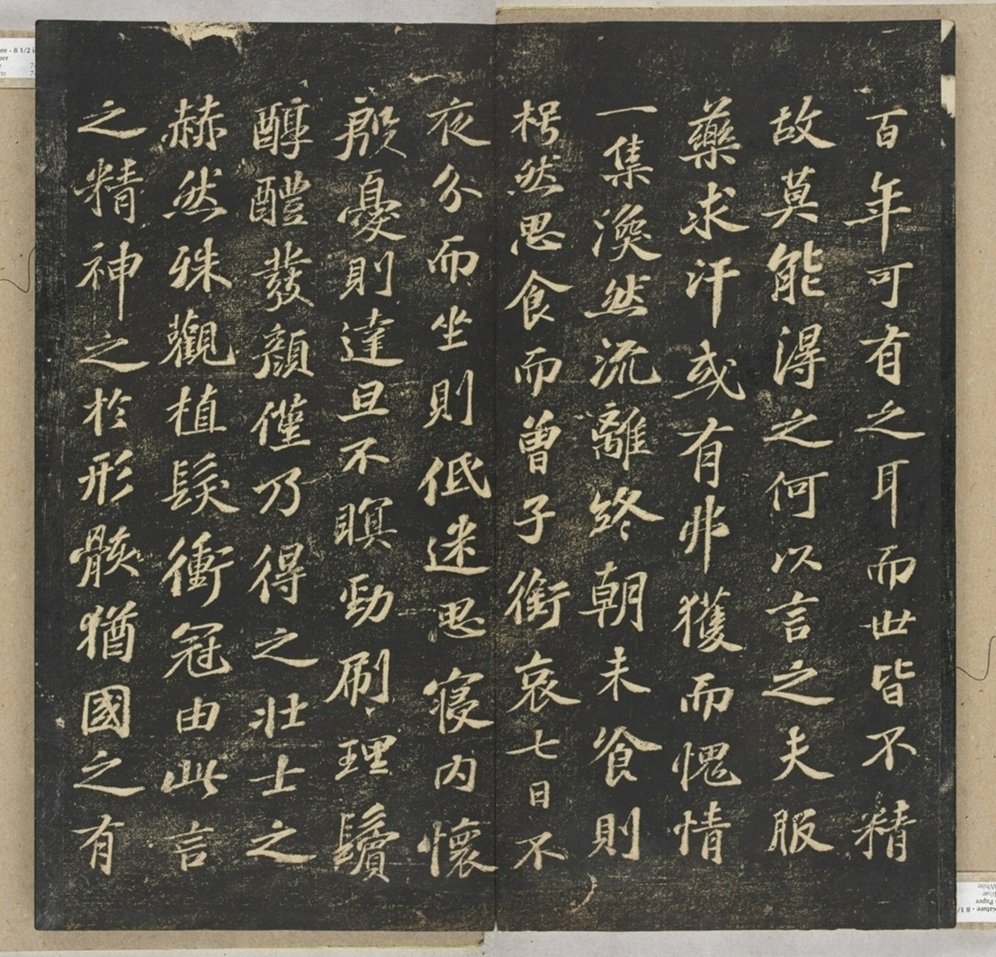 百年可有之耳而世皆不精
故莫能得之何以言之夫服
藥求汗或有弗獲而愧情
一集渙然流離終朝未飡則
枵然思食而曾子銜哀七日不
夜分而坐則低迷思寝内懷
殷憂則達旦不瞑勁刷理鬢
醇醴發顔僅乃得之壯士之
赫然殊觀植髮衝冠由此言
之精神之於形骸猶國之有